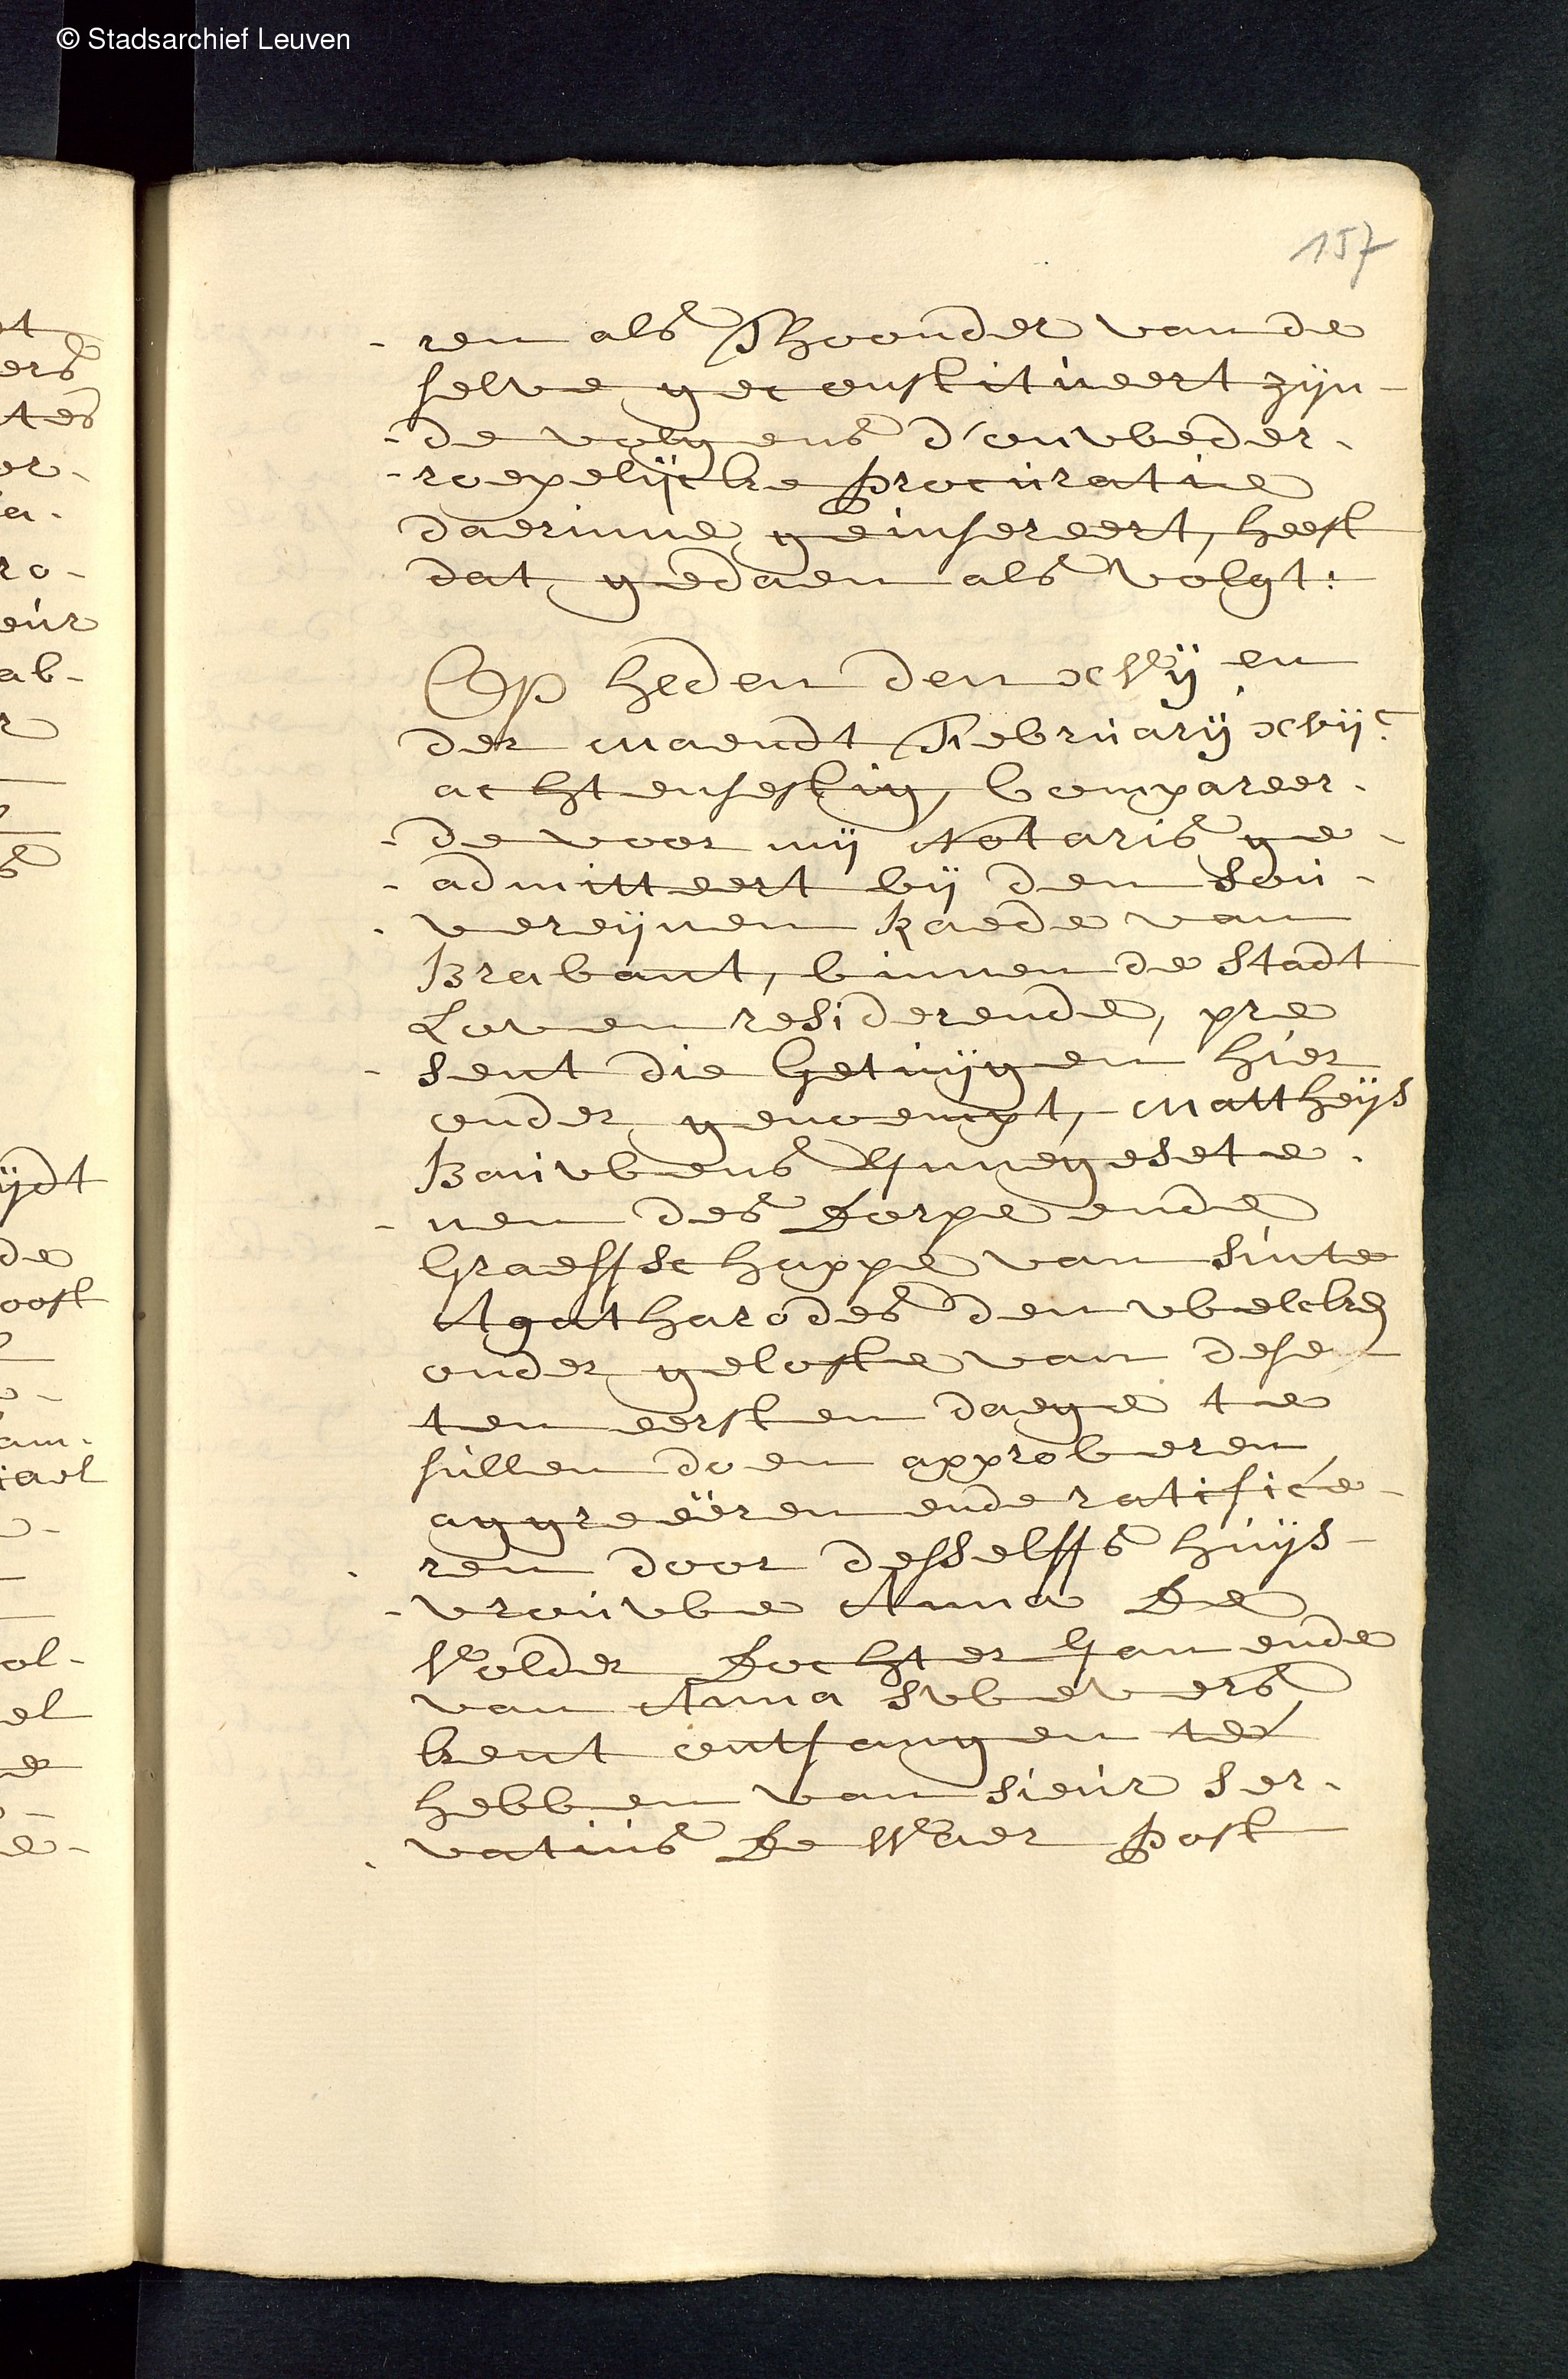 © Stadsarchief Leuven
157
-ren als Thoonder van de
selve geconstitueert zijn-
-de volgens d'onweder-
-roepelijcke procuratie
daerinne geinsereert, heeft
dat gedaen als volgt:
Op heden den xvij en
der maendt February xvijc
achtensestig, Compareer-
-de voor mij Notaris ge-
-admitteert bij den Sou-
-vereijnen Raede van
Brabant, binnen de Stadt
Loven residerende, pre
-sent die Getuijgen hier
onder genoempt, Mattheijs
Bauwens Innegesete-
-nen des Dorpe ende
Graeffschappe van Sinte
Agatharodes den welcken
onder gelofte van desen
ten eersten daege te
sullen doen approberen
aggreëren ende ratifice-
-ren door desselffs huijs-
-vrouwe Anna De
Volder Dochter Jan ende
van Anna Swevers
kent ontfangen te
hebben van Sieur Ser-
-vatius De Waer Post